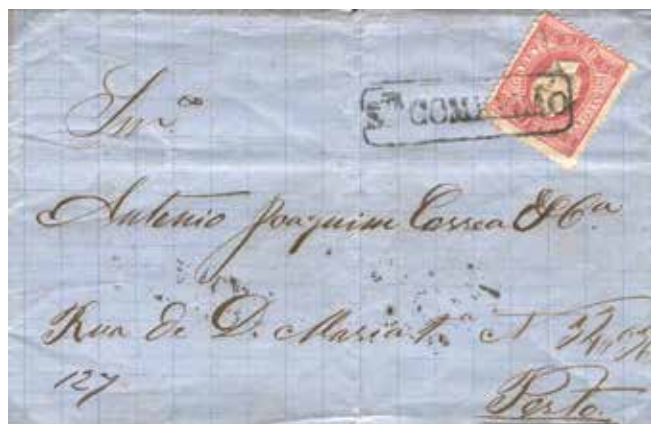 Snr.es
Sta COMBADÃO
Antonio Joaquim Correa & Ca
Rua de D. Maria 2.a N
127
Porto